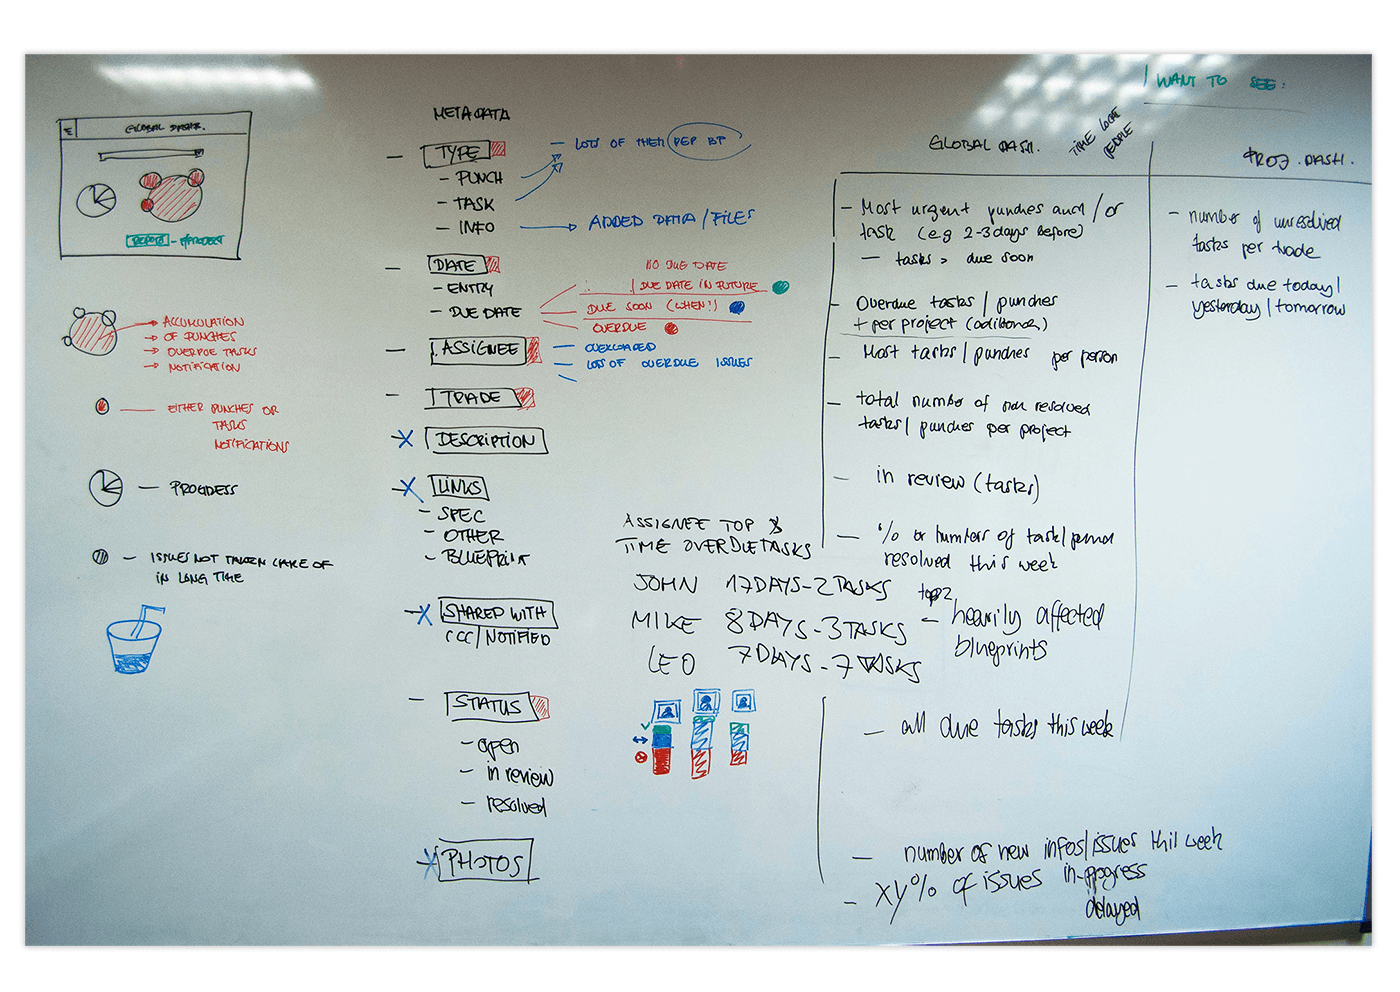 GLOBAL DASH.
REPORT - PROJECT
ACCUMULATION
OF PUNCHES
OVERDUE TASKS
NOTIFICATION
EITHER PUNCHES OR
TASKS
NOTIFICATIONS
— PROGRESS
— ISSUES NOT TAKEN CARE OF
IN LONG TIME
METADATA
— TYPE
- PUNCH
- TASK
- INFO
— LOTS OF THEM PER BP
ADDED DATA/FILES
— DATE
- ENTRY
- DUE DATE
NO DUE DATE
DUE DATE IN FUTURE
DUE SOON (WHEN!)
OVERDUE
— ASSIGNEE
— OVERLOADED
— LOTS OF OVERDUE ISSUES
— TRADE
X DESCRIPTION
X LINKS
- SPEC
- OTHER
- BLUEPRINT
X SHARED WITH
CC/NOTIFIED
— STATUS
- open
- in review
- resolved
X PHOTOS
ASSIGNEE TOP
TIME OVERDUE TASKS
JOHN 17DAYS-2TASKS
MIKE 8DAYS-3TASKS
LEO 7DAYS-7TASKS
I WANT TO SEE:
GLOBAL DASH.
TIME
PEOPLE
- Most urgent punches and/or
task (e.g 2-3days before)
— tasks > due soon
- Overdue tasks / punches
+ per project (additional)
- Most tasks / punches per person
- total number of non resolved
tasks / punches per project
- in review (tasks)
- % or numbers of task/punch
resolved this week
top 2
- heavily affected
blueprints
- all due tasks this week
- number of new infos/issues this week
- xy% of issues in-progress
delayed
PROJ. DASH.
- number of unresolved
tasks per trade
- tasks due today/
yesterday/tomorrow